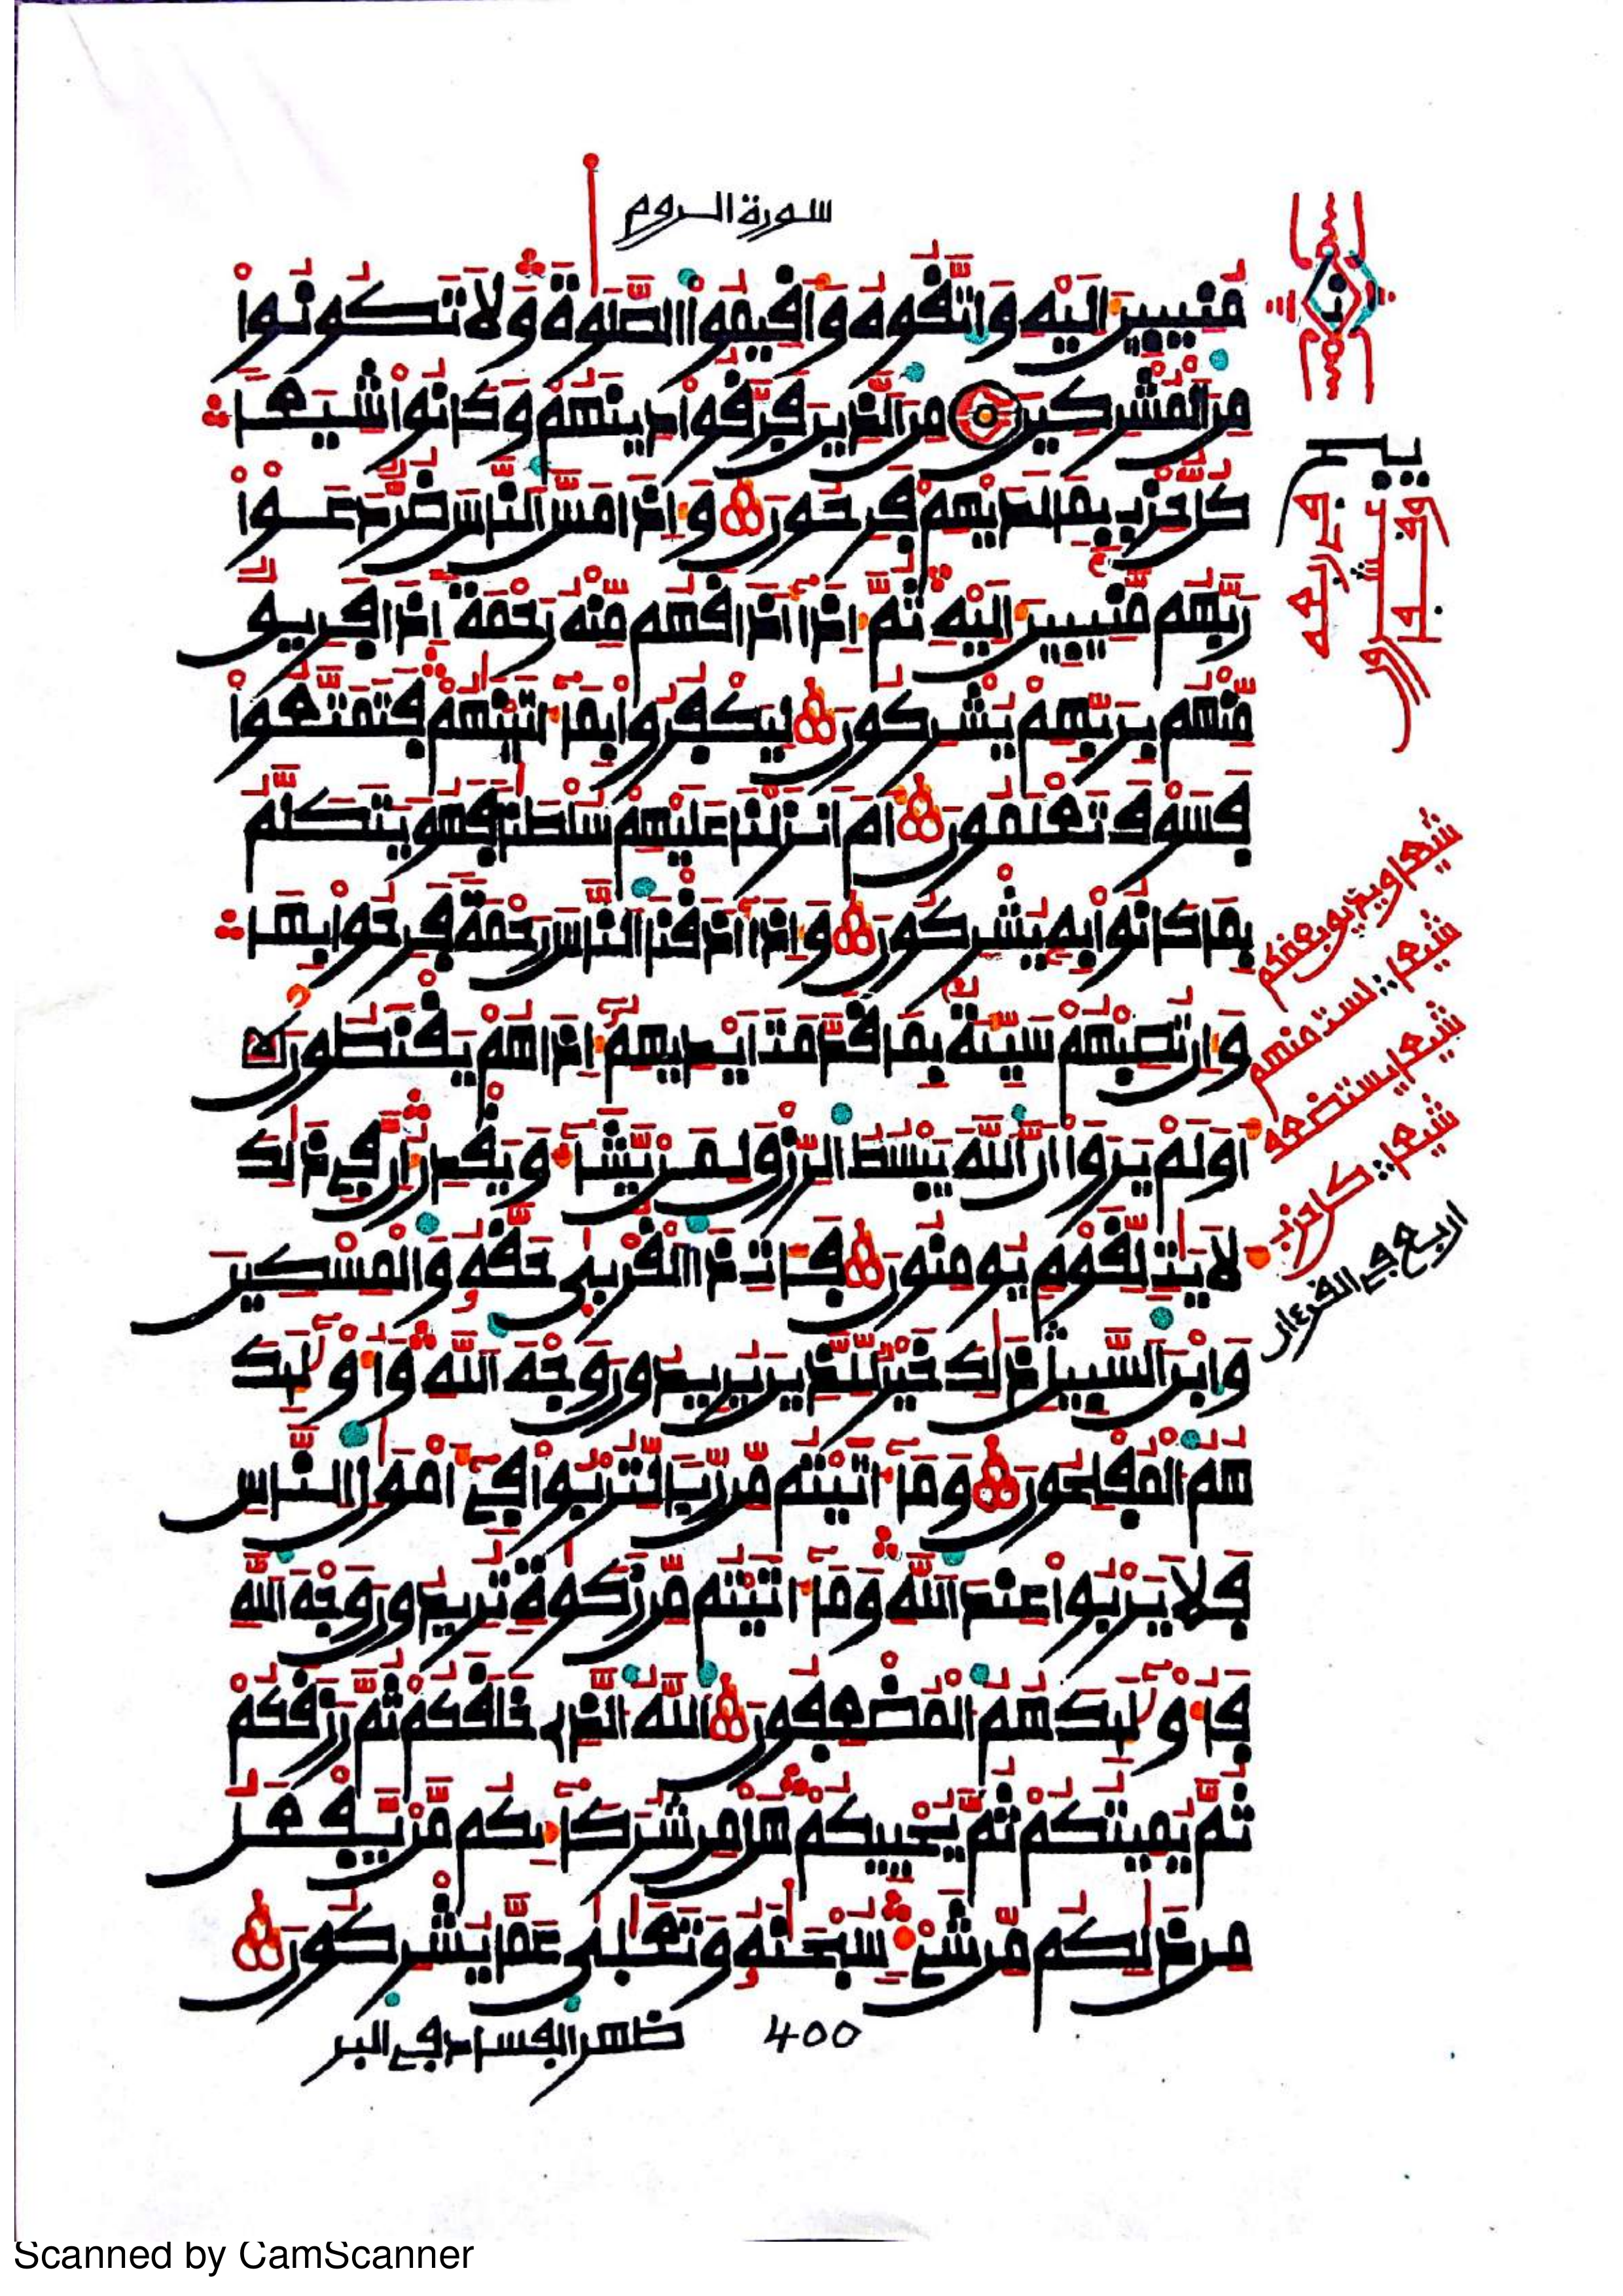 سورة الروم
مُنِيبِينَ إِلَيْهِ وَاتَّقُوهُ وَأَقِيمُوا الصَّلَوٰةَ وَلَا تَكُونُوا
مِنَ الْمُشْرِكِينَ مِنَ الَّذِينَ فَرَّقُوا دِينَهُمْ وَكَانُوا شِيَعًا
كُلُّ حِزْبٍ بِمَا لَدَيْهِمْ فَرِحُونَ وَإِذَا مَسَّ النَّاسَ ضُرٌّ دَعَوْا
رَبَّهُم مُّنِيبِينَ إِلَيْهِ ثُمَّ إِذَا أَذَاقَهُم مِّنْهُ رَحْمَةً إِذَا فَرِيقٌ
مِّنْهُم بِرَبِّهِمْ يُشْرِكُونَ لِيَكْفُرُوا بِمَا ءَاتَيْنَٰهُمْ فَتَمَتَّعُوا
فَسَوْفَ تَعْلَمُونَ أَمْ أَنزَلْنَا عَلَيْهِمْ سُلْطَٰنًا فَهُوَ يَتَكَلَّمُ
بِمَا كَانُوا بِهِ يُشْرِكُونَ وَإِذَا أَذَقْنَا النَّاسَ رَحْمَةً فَرِحُوا بِهَا
وَإِن تُصِبْهُمْ سَيِّئَةٌ بِمَا قَدَّمَتْ أَيْدِيهِمْ إِذَا هُمْ يَقْنَطُونَ
أَوَلَمْ يَرَوْا أَنَّ اللَّهَ يَبْسُطُ الرِّزْقَ لِمَن يَّشَاءُ وَيَقْدِرُ إِنَّ فِي ذَٰلِكَ
لَأَيَٰتٍ لِّقَوْمٍ يُومِنُونَ فَـَٔاتِ ذَا الْقُرْبَىٰ حَقَّهُ وَالْمِسْكِينَ
وَابْنَ السَّبِيلِ ذَٰلِكَ خَيْرٌ لِّلَّذِينَ يُرِيدُونَ وَجْهَ اللَّهِ وَأُوْلَٰئِكَ
هُمُ الْمُفْلِحُونَ وَمَا ءَاتَيْتُم مِّن رِّبًا لِّتُرْبُوا فِي أَمْوَٰلِ النَّاسِ
فَلَا يَرْبُوا عِندَ اللَّهِ وَمَا ءَاتَيْتُم مِّن زَكَوٰةٍ تُرِيدُونَ وَجْهَ اللَّهِ
فَأُوْلَٰئِكَ هُمُ الْمُضْعِفُونَ اللَّهُ الَّذِي خَلَقَكُمْ ثُمَّ رَزَقَكُمْ
ثُمَّ يُمِيتُكُمْ ثُمَّ يُحْيِيكُمْ هَلْ مِن شُرَكَائِكُم مَّن يَّفْعَلُ
مِن ذَٰلِكُم مِّن شَيْءٍ سُبْحَٰنَهُ وَتَعَٰلَىٰ عَمَّا يُشْرِكُونَ
400
ظهر الفساد في البر
شيعا ويذيق بعضكم
شيعا لست منهم
شيعا يستضعف
شيعا كل حزب
اربع في القرءان
Scanned by CamScanner